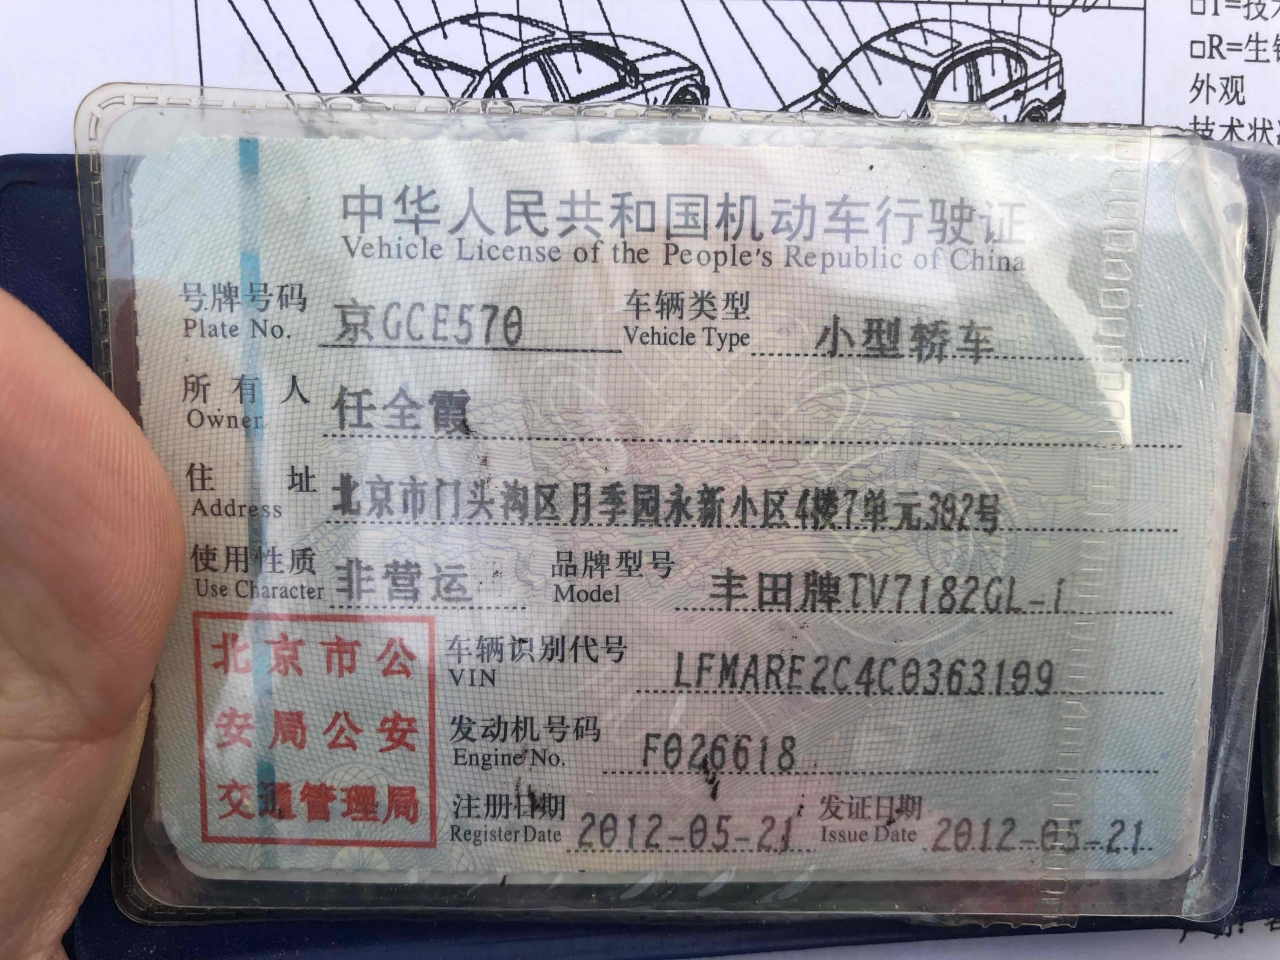 □R=生
外观
技术状
中华人民共和国机动车行驶证
Vehicle License of the People's Republic of China
号牌号码 京GCE570 车辆类型 小型轿车
Plate No. Vehicle Type
所有人 任全霞
Owner
住址 北京市门头沟区月季园永新小区4楼7单元302号
Address
使用性质 非营运 品牌型号 丰田牌TV7182GL-i
Use Character Model
北京市公
安局公安
交通管理局
车辆识别代号 LFMARE2C4C0363109
VIN
发动机号码 F026618
Engine No.
注册日期 2012-05-21 发证日期 2012-05-21
Register Date Issue Date